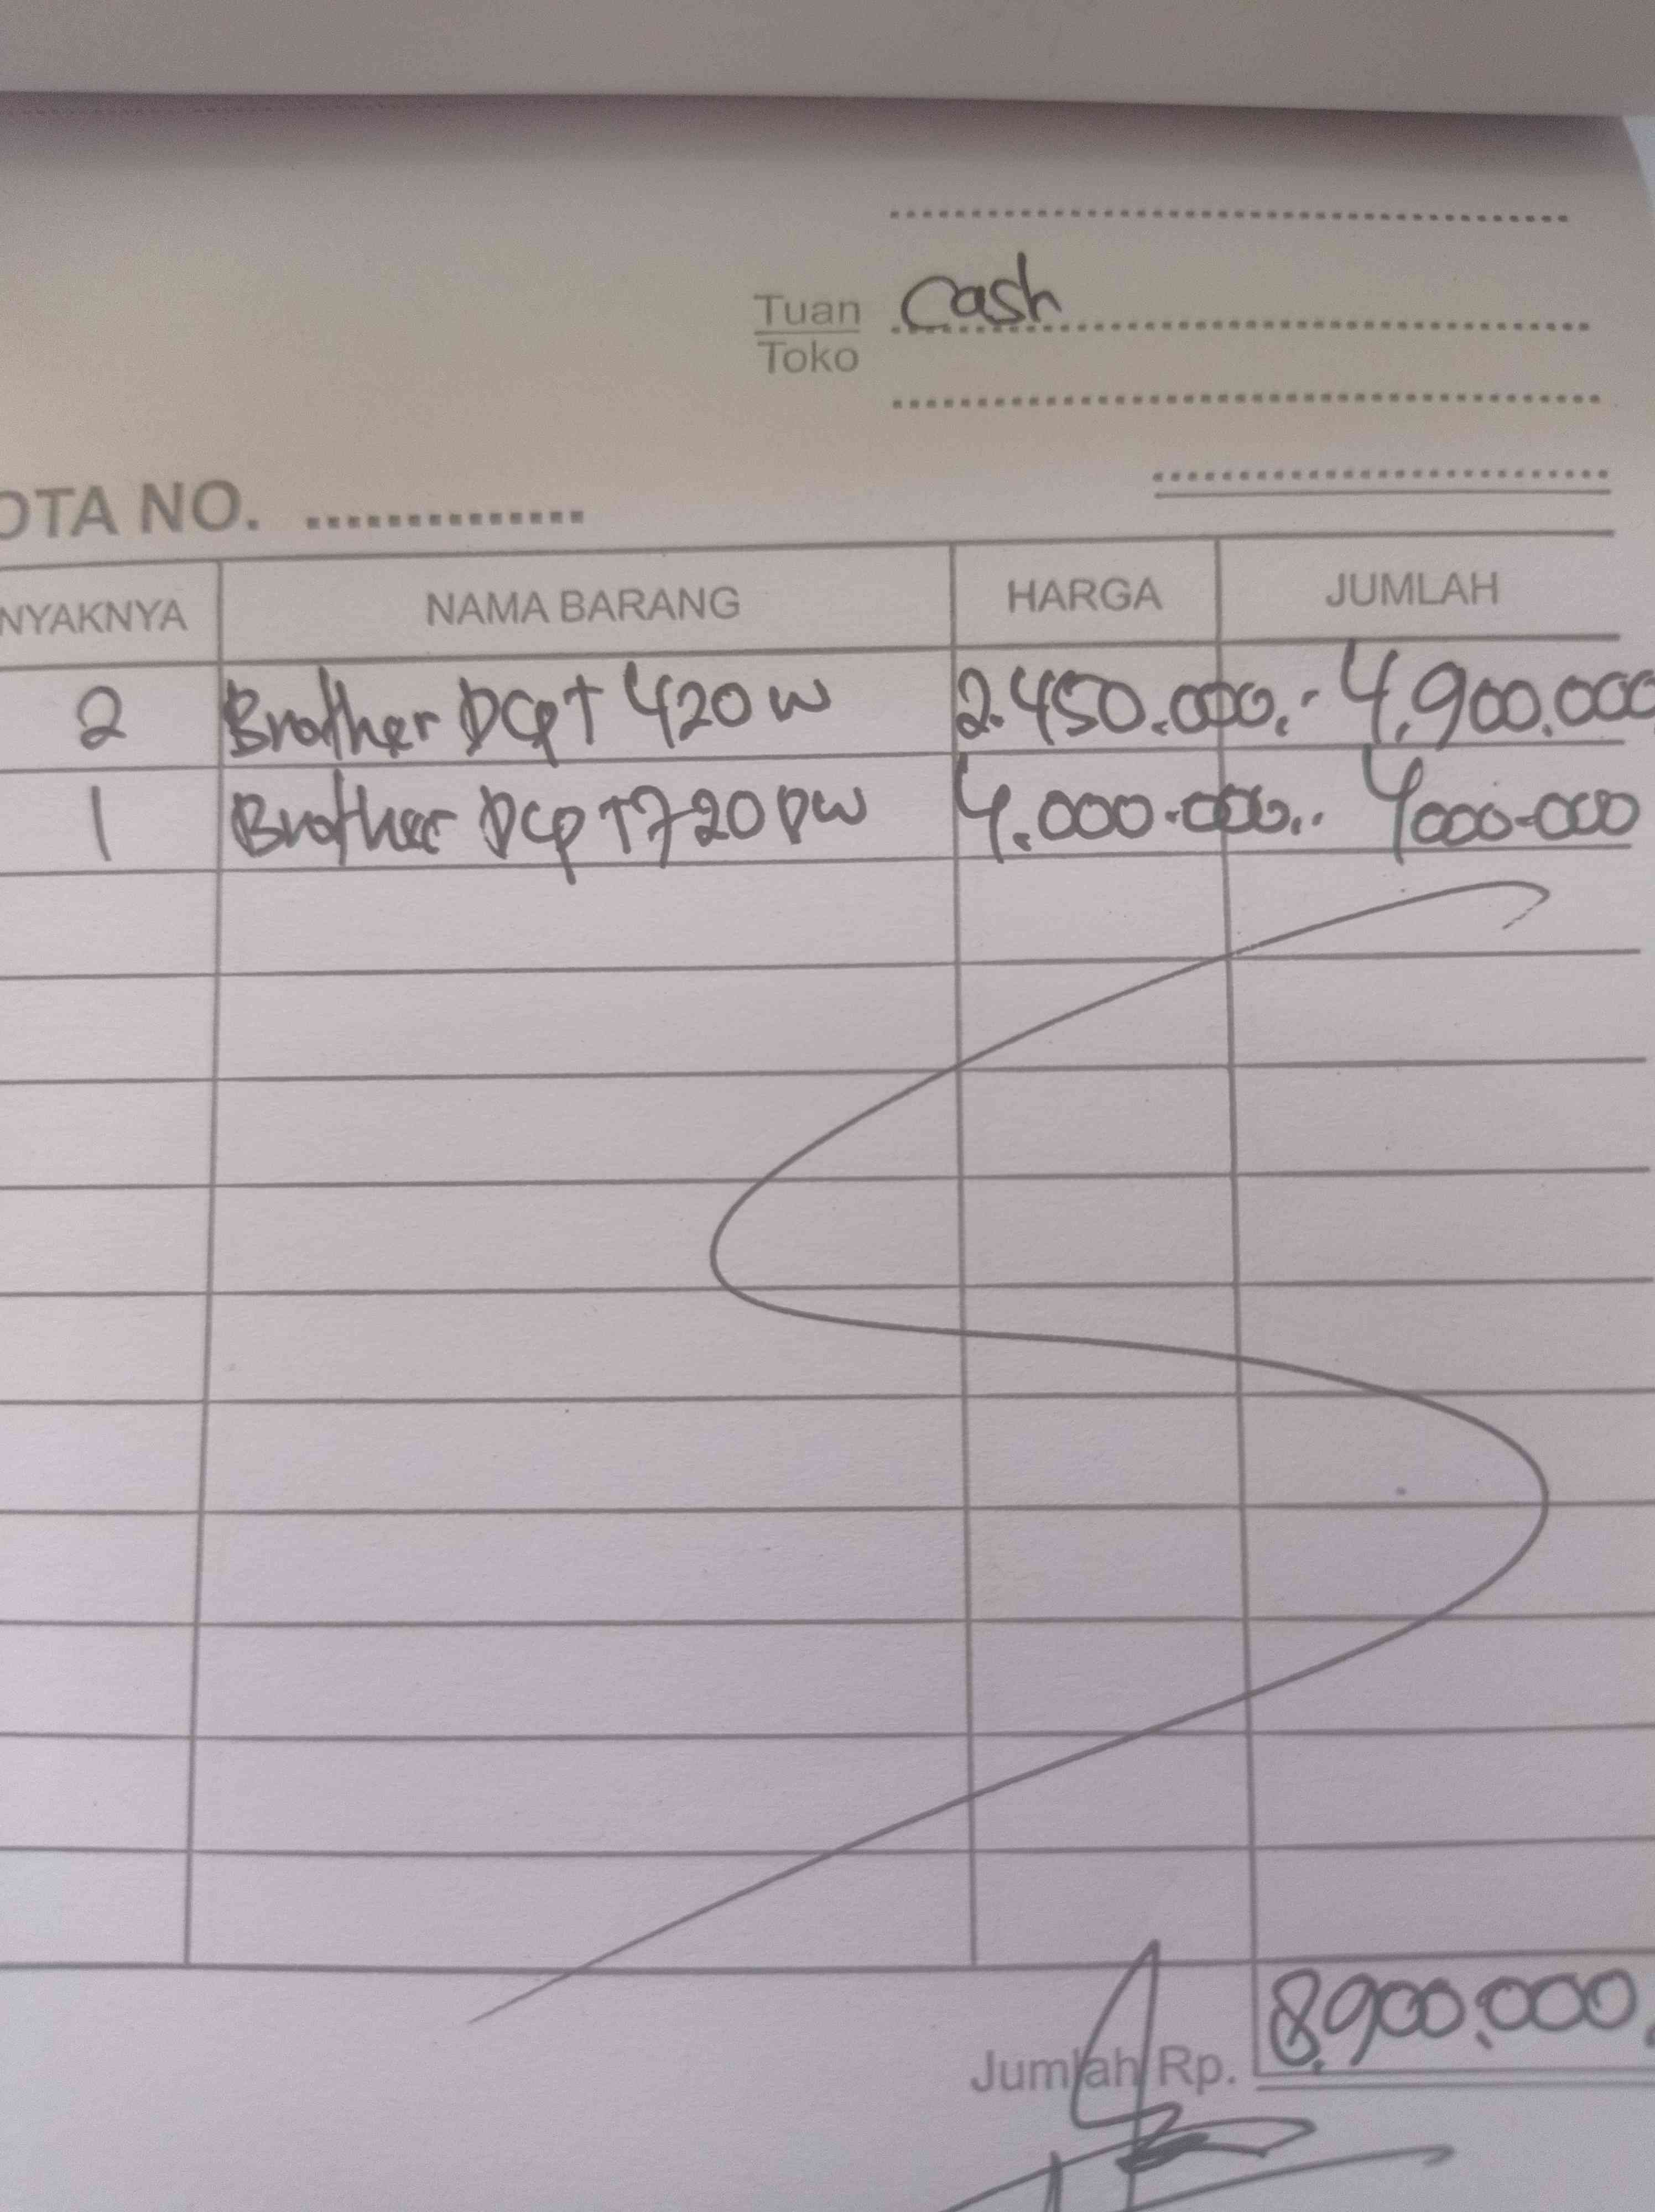 Cash
Tuan
Toko
OTA NO. ..............
NYAKNYA NAMA BARANG HARGA JUMLAH
2 Brother DCP T 420 W 2.450.000,- 4.900.000
1 Brother DCP T720 DW 4.000.000,. 4000.000
Jumlah Rp. 8.900.000